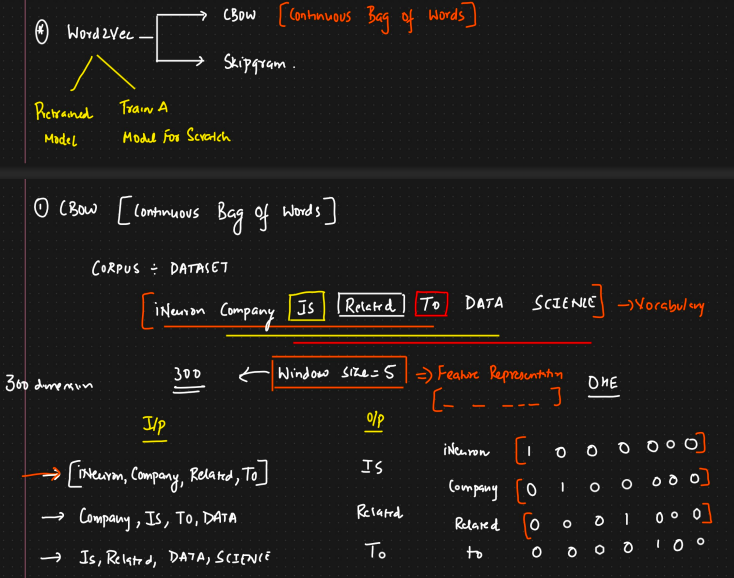 (*) Word2Vec → CBOW [Continuous Bag of Words]
→ Skipgram.
Pretrained Model
Train A Model For Scratch
① CBOW [Continuous Bag of Words]
CORPUS ÷ DATASET
[iNeuron Company Is Related To DATA SCIENCE] → Vocabulary
300 dimension 300 ← Window size = 5 ⇒ Feature Representation OHE
[_ _ _ _ _]
I/p O/p
iNeuron [1 0 0 0 0 0 0]
→ [iNeuron, Company, Related, To] IS
Company [0 1 0 0 0 0 0]
→ Company, Is, To, DATA Related
Related [0 0 0 1 0 0 0]
→ Is, Related, DATA, SCIENCE To
to 0 0 0 0 1 0 0